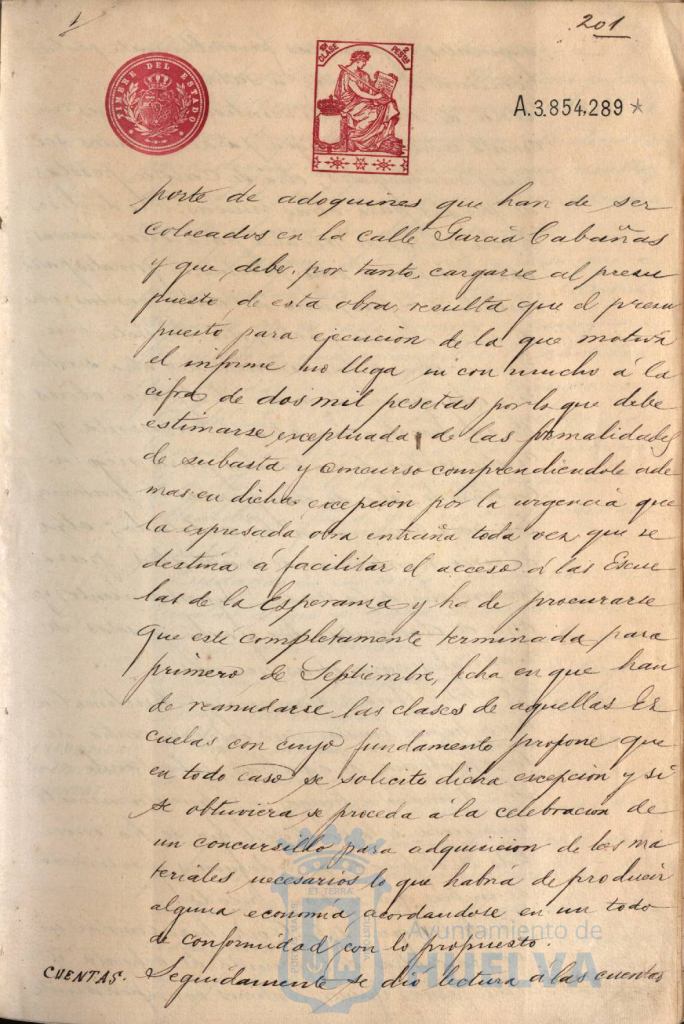 201
TIMBRE DEL ESTADO
CLASE
PESETAS
A.3.854,289 *
porte de adoquines que han de ser
colocados en la calle García Cabañas
y que debe, por tanto, cargarse al presu
puesto de esta obra, resulta que el presu
puesto para ejecucion de la que motiva
el informe no llega ni con mucho á la
cifra de dos mil pesetas por lo que debe
estimarse exceptuada de las formalidades
de subasta y concurso comprendiendole ade
mas en dicha excepcion por la urgencia que
la expresada obra entraña toda vez que se
destina á facilitar el acceso á las Escue
las de la Esperanza y ha de procurarse
que esté completamente terminada para
primero de Septiembre, fcha en que han
de reanudarse las clases de aquellas Es
cuelas con cuyo fundamento propone que
en todo caso se solicite dicha escepcion y si
se obtuviera se proceda á la celebracion de
un concursillo para adquisicion de los ma
teriales necesarios lo que habria de producir
alguna economia acordandose en un todo
de conformidad con lo propuesto.
CUENTAS. Seguidamente se dio lectura a las cuentas
Ayuntamiento de
HUELVA